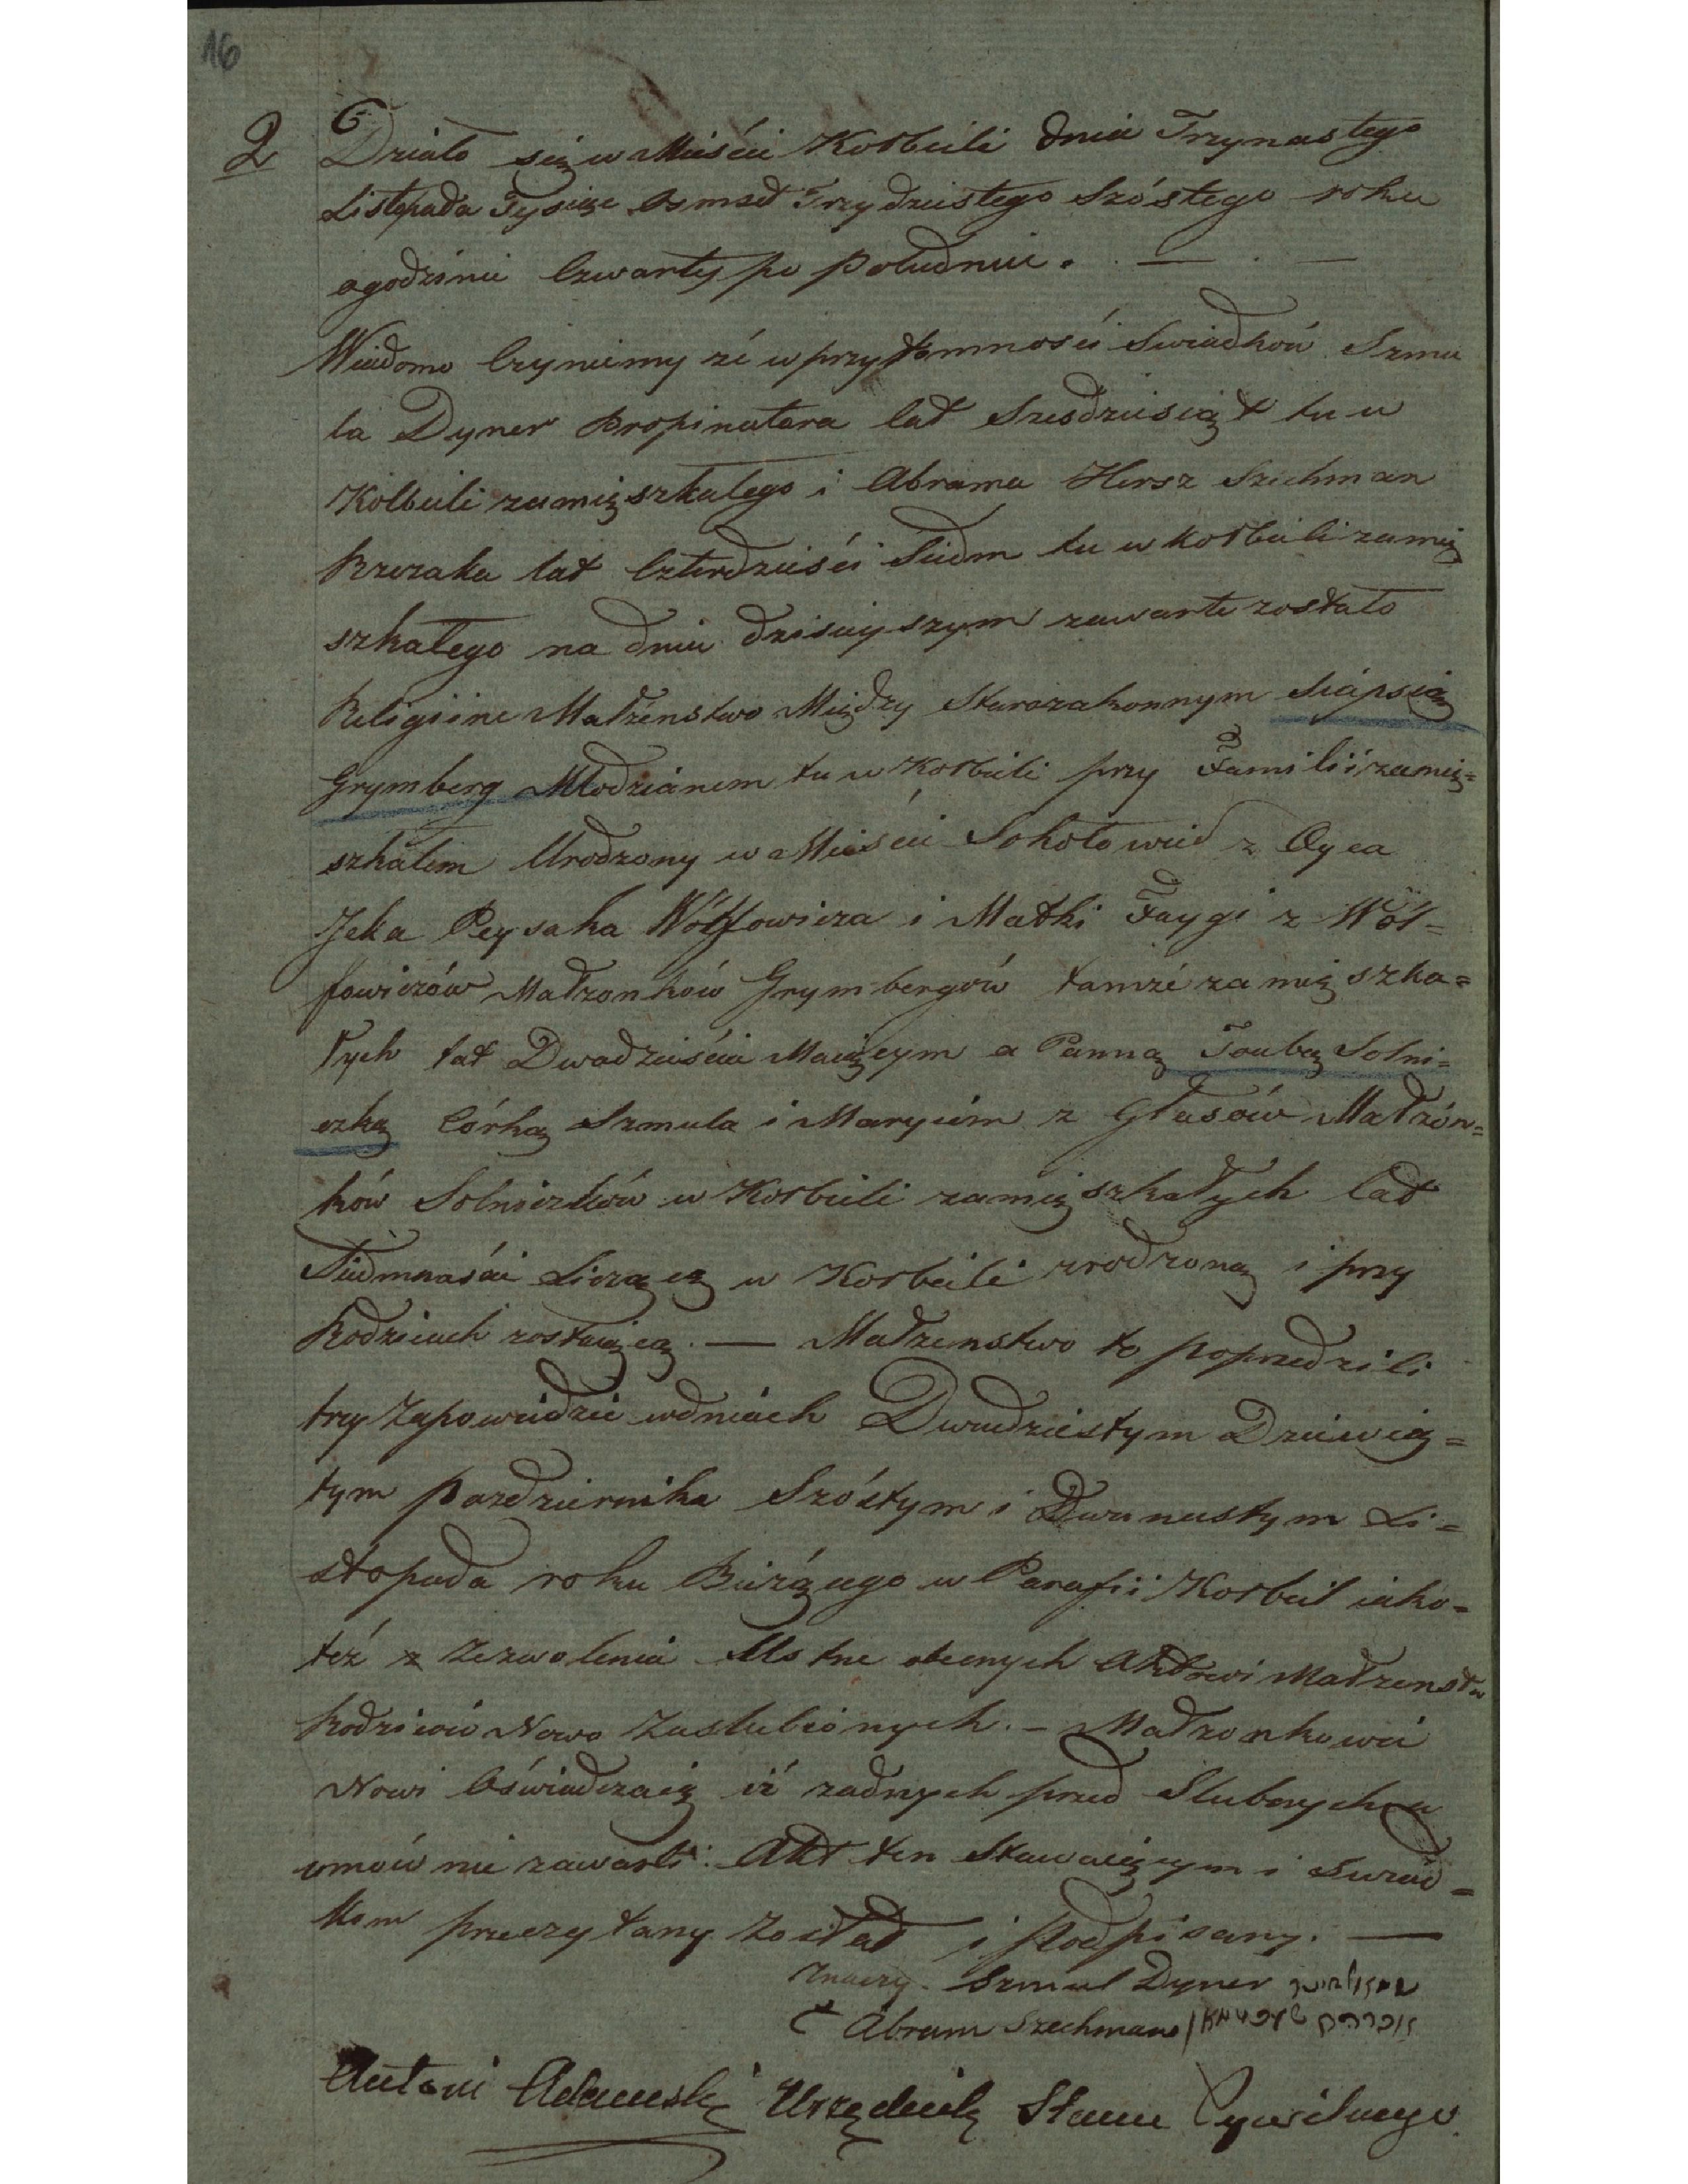 16
2
6
Działo się w Mieście Kołbieli dnia Trzynastego
Listopada Tysiąc Osmset Trzydziestego Szóstego roku
o godzinie Czwarty po Południu. — . —
Wiadomo Czyniemy że w przytomności Swiadków Szmu
la Dyner Propinatora lat Szesdziesiąt tu w
Kołbieli zamięszkałego i Abrama Hersz Szichman
Rzezaka lat Czterdzieści Siedm tu w Kołbieli zamię
szkałego na dniu dzisieyszym zawarte zostało
Religiine Małżeństwo Między Starozakonnym Siápsią
Grymberg Młodzianem tu w Kołbieli przy Familii zamię=
szkałem Urodzony w Mieście Sokołowie z Oyca
Jcka Peysaka Wólfowicza i Matki Faygi z Wól=
fowiczów Małżonków Grymbergów tamże zamięszka=
łych lat Dwadzieścia Maiącym a Panną Taubą Solni=
czką Córką Szmula i Maryiem z Głasów Małżon=
ków Solniczków w Kołbieli zamięszkałych lat
Siedmnaści Liczącą w Kołbieli zrodzoną i przy
Rodzicach zostaiącą. — Małzenstwo to poprzedzili
trzy Zapowiedzie w dniach Dwudziestym Dziewią=
tym Pazdziernika Szóstym i Dwunastym Li=
stopada roku Bieżącego w Parafii Kołbiel iako=
też z Zezwolenia Ustne obecnych Aktowi Małzenstw
Rodziców Nowo Zaslubionych. — Małzonkowie
Nowi Oświadczaią iż żadnych przed Slubnych
umów nie zawarli. Akt ten Stawaiącym i Swiad=
kom przeczytany Został i Podpisany. —
Znaczy. Szmul Dyner
Abram Szechman
Antoni Adamski Urzędnik Stanu Cywilnego